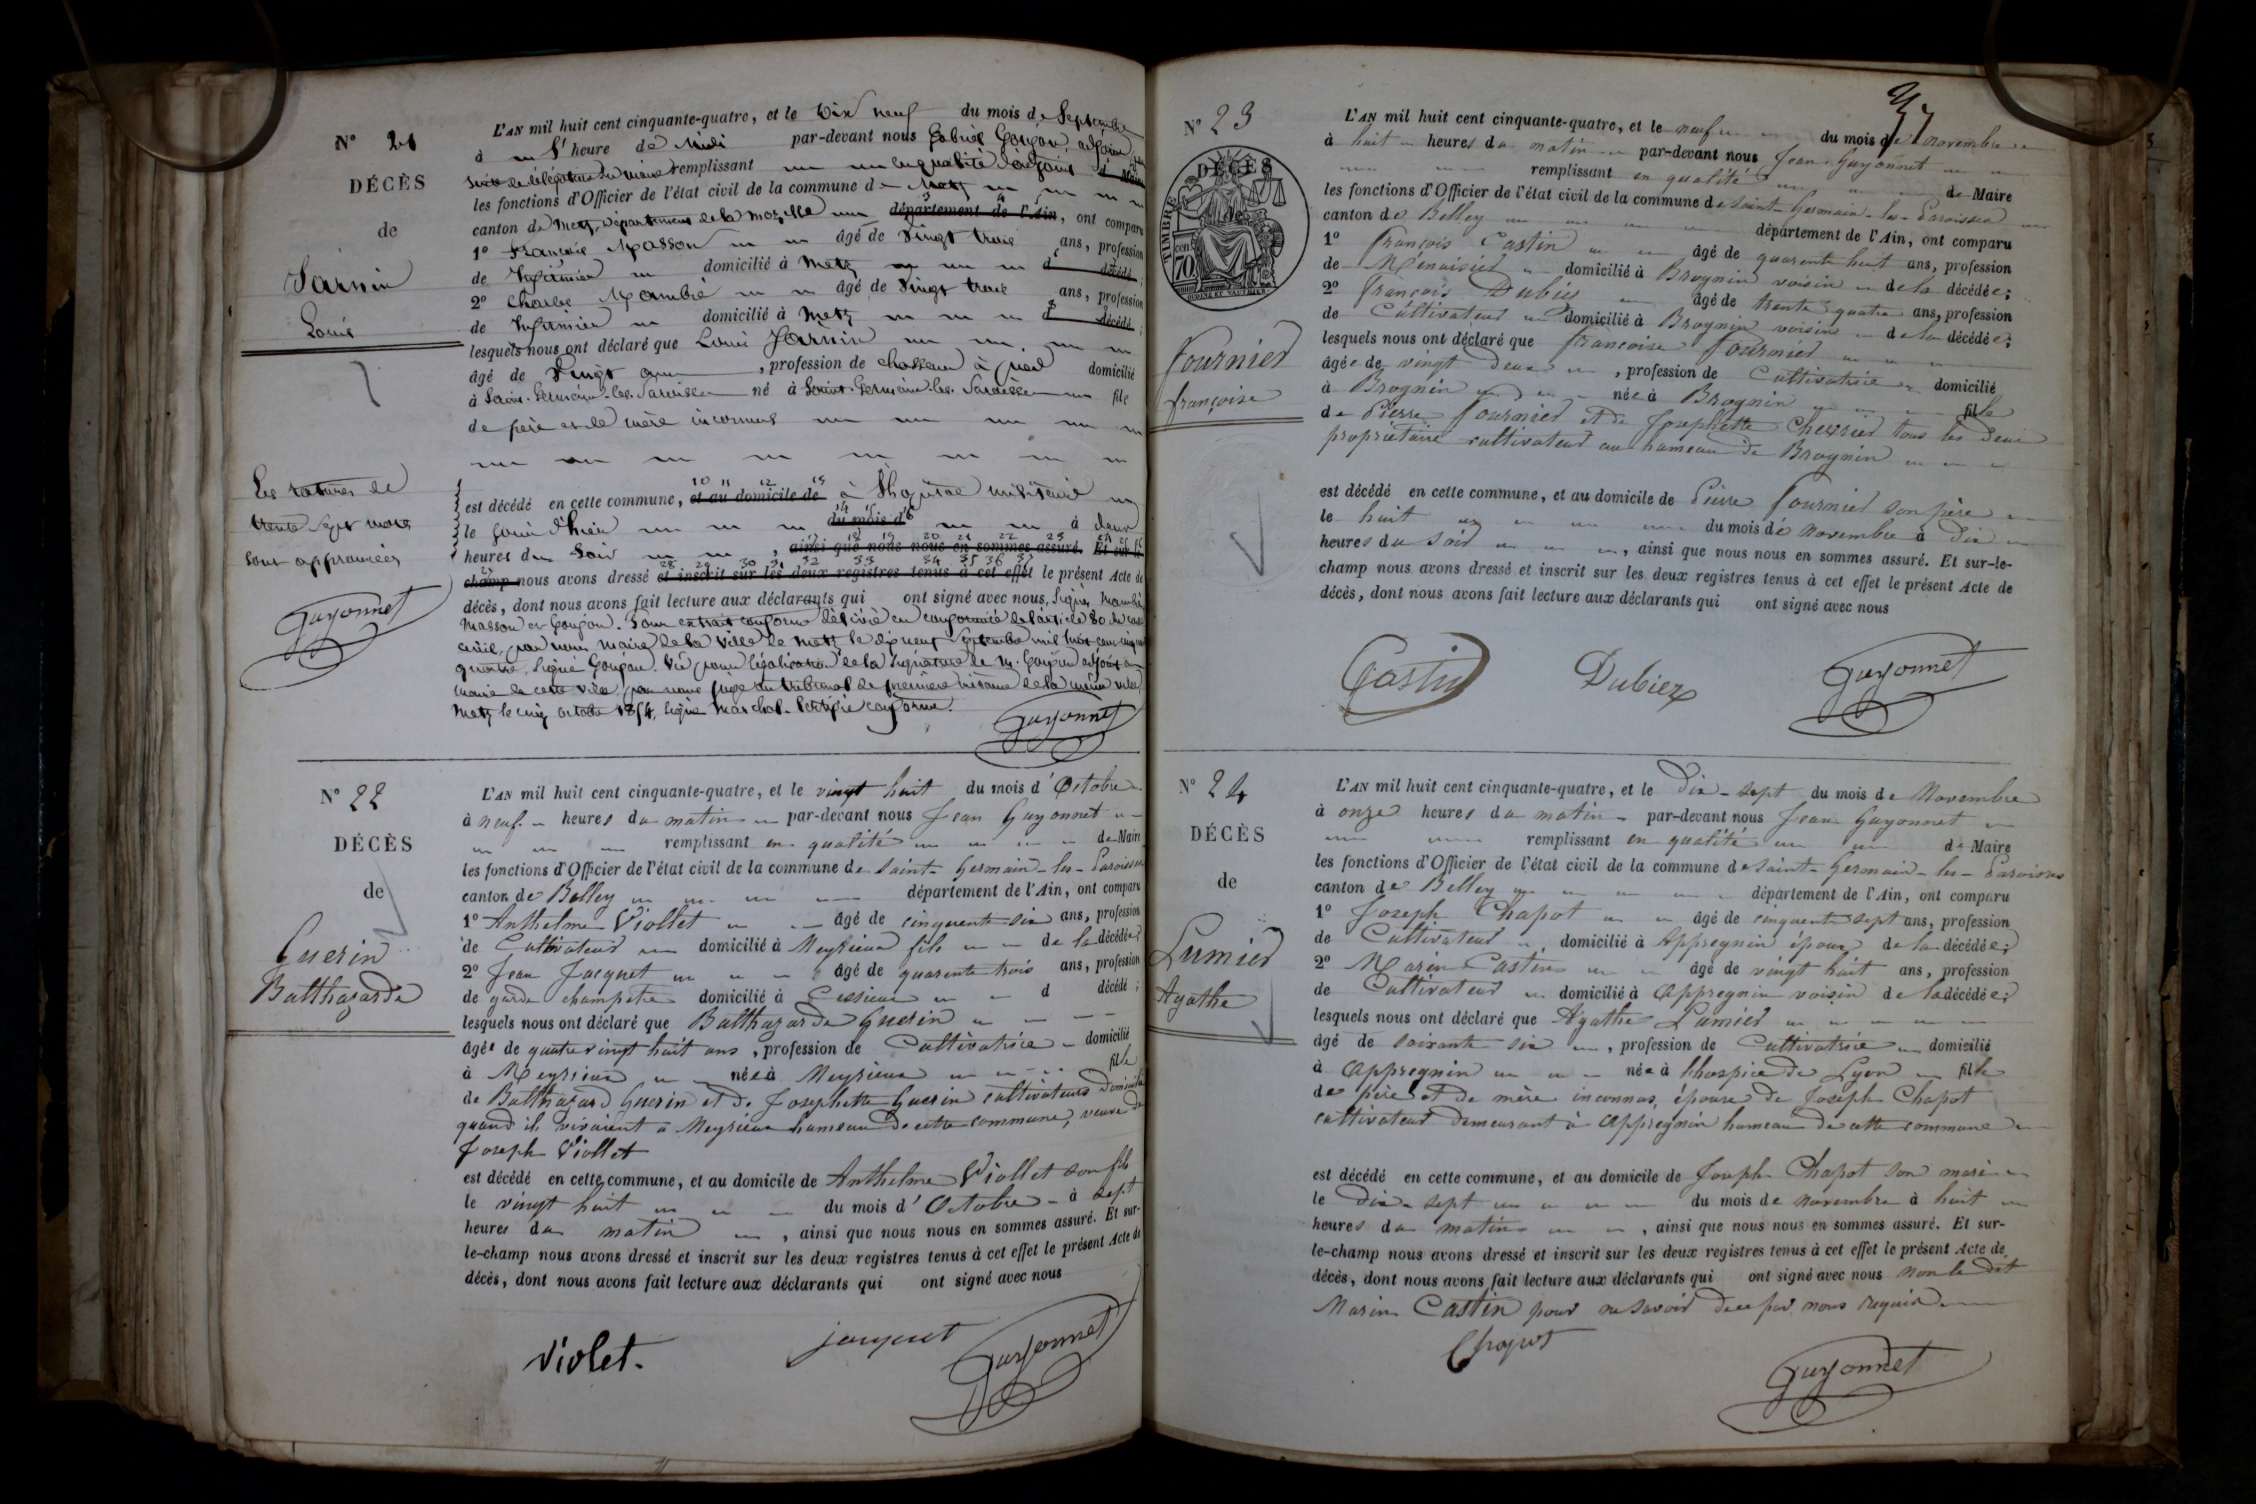 N° 21
DÉCÈS
de
Jarnin
Louis
Les ratures de
trente sept mots
sont approuvées
Guyonnet
L'AN mil huit cent cinquante-quatre, et le dix neuf du mois de Septembre
à l'heure de Midi par-devant nous Gabriel Goujon, adjoint
remplissant en qualité d'adjoint
les fonctions d'Officier de l'état civil de la commune de Metz
canton de Metz, département de la Mozelle département de l'Ain, ont comparu
1° François Masson âgé de Vingt trois ans, profession
de Infirmier domicilié à Metz d décédé;
2° Charles Mambré âgé de Vingt trois ans, profession
de Infirmier domicilié à Metz d décédé;
lesquels nous ont déclaré que Louis Jarnin
âgé de Vingt , profession de chasseur à pied domicilié
à Saint-Germain-les-Paroisses né à Saint-Germain-les-Paroisses fils
de père et de mère inconnus
est décédé en cette commune, et au domicile de à l'hopital militaire
le jour d'hier du mois d à deux
heures du soir , ainsi que nous nous en sommes assuré. Et sur-le-
champ nous avons dressé et inscrit sur les deux registres tenus à cet effet le présent Acte de
décès, dont nous avons fait lecture aux déclarants qui ont signé avec nous, Signé Mambré
Masson et Goujon. Pour extrait conforme délivré en conformité de l'article 80 du code
civil, par nous Maire de la Ville de Metz le dix neuf Septembre mil huit cent cinquante
quatre, Signé Goujon. Vu pour légalisation de la Signature de M. Goujon adjoint au
maire de cette ville, par nous juge au tribunal de première instance de la même ville
Metz le cinq octobre 1854, signé Marchal. Certifié conforme.
Guyonnet
N° 22
DÉCÈS
de
Guerin
Balthazarde
L'AN mil huit cent cinquante-quatre, et le vingt huit du mois d'Octobre
à neuf heures du matin par-devant nous Jean Guyonnet
remplissant en qualité de Maire
les fonctions d'Officier de l'état civil de la commune de Saint-Germain-les-Paroisses
canton de Belley département de l'Ain, ont comparu
1° Anthelme Viollet âgé de cinquante six ans, profession
de Cultivateur domicilié à Meyrieux fils de la décédée;
2° Jean Jacquet âgé de quarante trois ans, profession
de garde champetre domicilié à Cessieux d décédé;
lesquels nous ont déclaré que Balthazarde Guerin
âgée de quatre vingt huit ans, profession de Cultivatrice domicilié
à Meyrieux née à Meyrieux fille
de Balthazard Guerin et de Josephette Guerin cultivateurs domiciliés
quand ils vivaient à Meyrieux hameau de cette commune, veuve de
Joseph Viollet
est décédé en cette commune, et au domicile de Anthelme Viollet son fils
le vingt huit du mois d'Octobre à sept
heures du matin , ainsi que nous nous en sommes assuré. Et sur-
le-champ nous avons dressé et inscrit sur les deux registres tenus à cet effet le présent Acte de
décès, dont nous avons fait lecture aux déclarants qui ont signé avec nous
Violet. jacquet Guyonnet
N° 23
DÉCÈS
de
TIMBRE
70
Fournier
françoise
L'AN mil huit cent cinquante-quatre, et le neuf du mois de novembre
à huit heures du matin par-devant nous Jean Guyonnet
remplissant en qualité de Maire
les fonctions d'Officier de l'état civil de la commune de Saint-Germain-les-Paroisses
canton de Belley département de l'Ain, ont comparu
1° François Castin âgé de quarante huit ans, profession
de Menuisier domicilié à Brognin voisin de la décédée;
2° François Dubiez âgé de trente quatre ans, profession
de Cultivateur domicilié à Brognin voisin de la décédée;
lesquels nous ont déclaré que françoise fournier
âgée de vingt deux , profession de Cultivatrice domicilié
à Brognin née à Brognin fille
de Pierre fournier et de Josephette Chevrier tous les deux
propriétaire cultivateur au hameau de Brognin
est décédé en cette commune, et au domicile de Pierre fournier son père
le huit du mois de novembre à dix
heures du soir , ainsi que nous nous en sommes assuré. Et sur-le-
champ nous avons dressé et inscrit sur les deux registres tenus à cet effet le présent Acte de
décès, dont nous avons fait lecture aux déclarants qui ont signé avec nous
Castin Dubiez Guyonnet
N° 24
DÉCÈS
de
Lumier
Agathe
L'AN mil huit cent cinquante-quatre, et le Dix-sept du mois de Novembre
à onze heures du matin par-devant nous Jean Guyonnet
remplissant en qualité de Maire
les fonctions d'Officier de l'état civil de la commune de Saint-Germain-les-Paroisses
canton de Belley département de l'Ain, ont comparu
1° Joseph Chapot âgé de cinquante sept ans, profession
de Cultivateur domicilié à Appregnin époux de la décédée;
2° Marin Castin âgé de vingt huit ans, profession
de Cultivateur domicilié à Appregnin voisin de la décédée;
lesquels nous ont déclaré que Agathe Lumier
âgé de soixante six , profession de Cultivatrice domicilié
à Appregnin née à l'hospice de Lyon fille
de père et de mère inconnus, épouse de Joseph Chapot
cultivateur demeurant à Appregnin hameau de cette commune
est décédé en cette commune, et au domicile de Joseph Chapot son mari
le Dix-sept du mois de novembre à huit
heures du matin , ainsi que nous nous en sommes assuré. Et sur-
le-champ nous avons dressé et inscrit sur les deux registres tenus à cet effet le présent Acte de
décès, dont nous avons fait lecture aux déclarants qui ont signé avec nous non le dit
Marin Castin pour ne savoir de ce par nous requis
Chapot Guyonnet